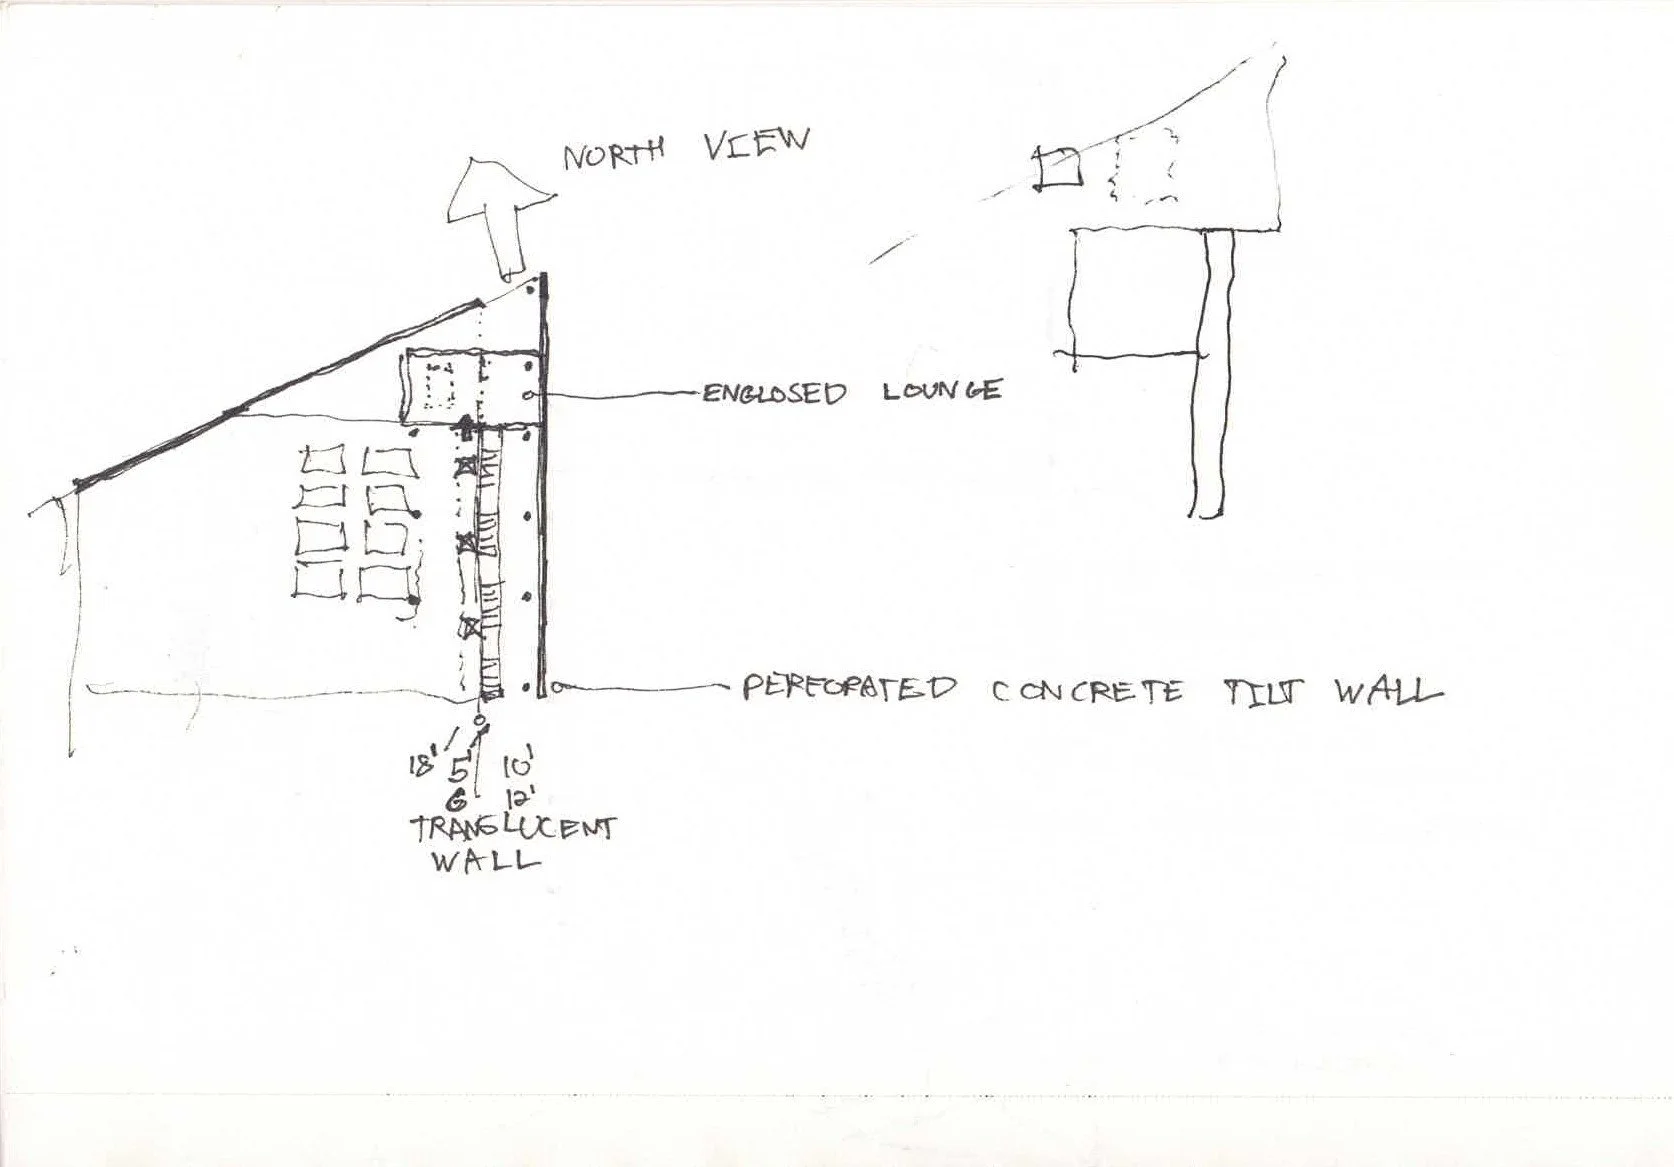 NORTH VIEW
ENCLOSED LOUNGE
PERFORATED CONCRETE TILT WALL
18' 5' 10'
6 12'
TRANSLUCENT
WALL